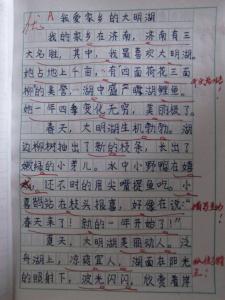 优 A 我爱家乡的大明湖
我的家乡在济南，济南有三
大名胜，其中，我最喜欢大明湖。
她占地上千亩，有四面荷花三面
柳的美誉，湖中盛产露湖鲤鱼。
她一年四季变化无穷，美丽极了。
春天，大明湖生机勃勃。湖
边柳树抽出了新的枝条，长出了
嫩绿的小芽儿。水中小野鸭在嬉
戏，还不时的用尖嘴捉鱼。小
喜鹊站在枝头报喜，好像在说：“
春天来了！新的一年开始了！”
夏天，大明湖美丽动人。泛
舟湖上，凉爽宜人。湖面在阳光
的照射下，波光闪闪，欣赏着岸